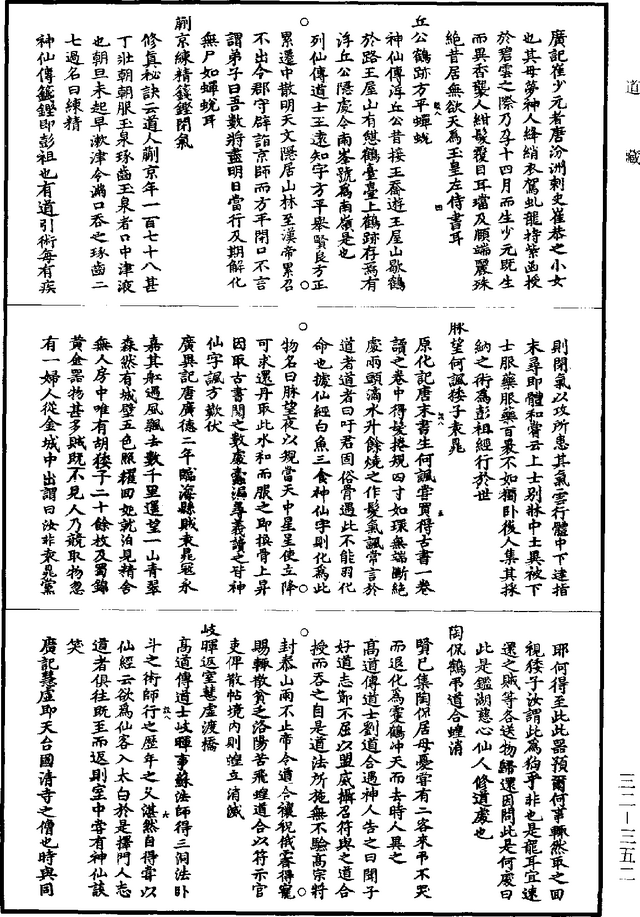 廣記崔少元者唐汾洲刺史崔恭之小女
也其母夢神人絳綃衣駕虬龍持紫函授
於碧雲之際乃孕十四月而生少元既生
而異香襲人紺髮覆目耳璫及頤端麗殊
絕昔居無欲天為玉皇左侍書耳
丘公鶴跡方平蟬蛻
神仙傳浮丘公昔接王喬遊王屋山歇鶴
於路王屋山有憇鶴臺臺上鶴跡存焉有
浮丘公隱處今南峯號為南嶺是也
列仙傳道士王遠知字方平舉賢良方正
累遷中散明天文隱居山林至漢帝累召
不出令郡守辟詣京師而方平閉口不言
謂弟子曰吾數將盡明日當行及期解化
無尸如蟬蛻耳
蒯京練精籛鏗閉氣
修真秘訣云道人蒯京年一百七十八甚
丁壯朝朝服玉泉琢齒玉泉者口中津液
也朝旦未起早漱津令滿口吞之琢齒二
七過名曰練精
神仙傳籛鏗即彭祖也有道引術每有疾
則閉氣以攻所患其氣雲行體中下達指
末尋即體和嘗云上士別牀中士異被下
士服藥服藥百裹不如獨卧後人集其採
納之術為彭祖經行於世
脉望何諷㺔子袁晁
原化記唐末書生何諷嘗買得古書一卷
讀之卷中得髮捲規四寸如環無端斷絕
處兩頭滴水升餘燒之作髮氣諷常言於
道者道者曰吁君固俗骨遇此不能羽化
命也據仙經白魚三食神仙字則化為此
物名曰脉望夜以規當天中星星使立降
可求還丹取此水和而服之即換骨上昇
因取古書閱之數處蠹漏尋義讀之皆神
仙字諷方歎伏
廣異記唐廣德二年臨海縣賊袁晁寇永
嘉其船遇風飄去數千里遙望一山青翠
森然有城壁五色照耀回柁就泊見精舍
無人房中唯有胡㺔子二十餘枚及蜀錦
黃金器物甚多賊既不見人乃競取物忽
有一婦人從金城中出謂曰汝非袁晁黨
耶何得至此此器預爾何事輒然取之回
視㺔子汝謂此為狗乎非也是龍耳宜速
還之賊等各送物歸還因問此是何處曰
此是鑑湖慈心仙人修道處也
陶侃鶴弔道合蝗消
賢已集陶侃居母憂嘗有二客來弔不哭
而退化為雙鶴冲天而去時人異之
高道傳道士劉道合遇神人告之曰聞子
好道志節不屈以盟威攝召符與之道合
授而吞之自是道法所施無不驗高宗將
封泰山雨不止帝令道合禳祝俄霽得寵
賜輒散貧乏洛陽苦飛蝗道合以符示官
吏俾散帖境內則蝗立消滅
岐暉返室慧虛渡橋
高道傳道士岐暉事蘇法師得三洞法卧
斗之術師行之歷年之乂湛然自得嘗以
仙經云欲為仙客入太白於是擇門人志
道者俱往既至而返則室中嘗有神仙談
笑
廣記慧虛即天台國清寺之僧也時與同
道藏
三二—三五二